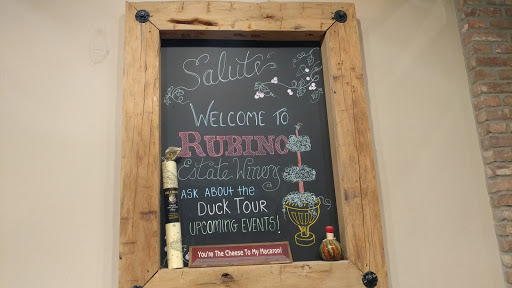 Salute
WELCOME TO
RUBINO
Estate Winery
ASK ABOUT the
DUCK TOUR
UPCOMING EVENTS!
You're The Cheese To My Macaroni